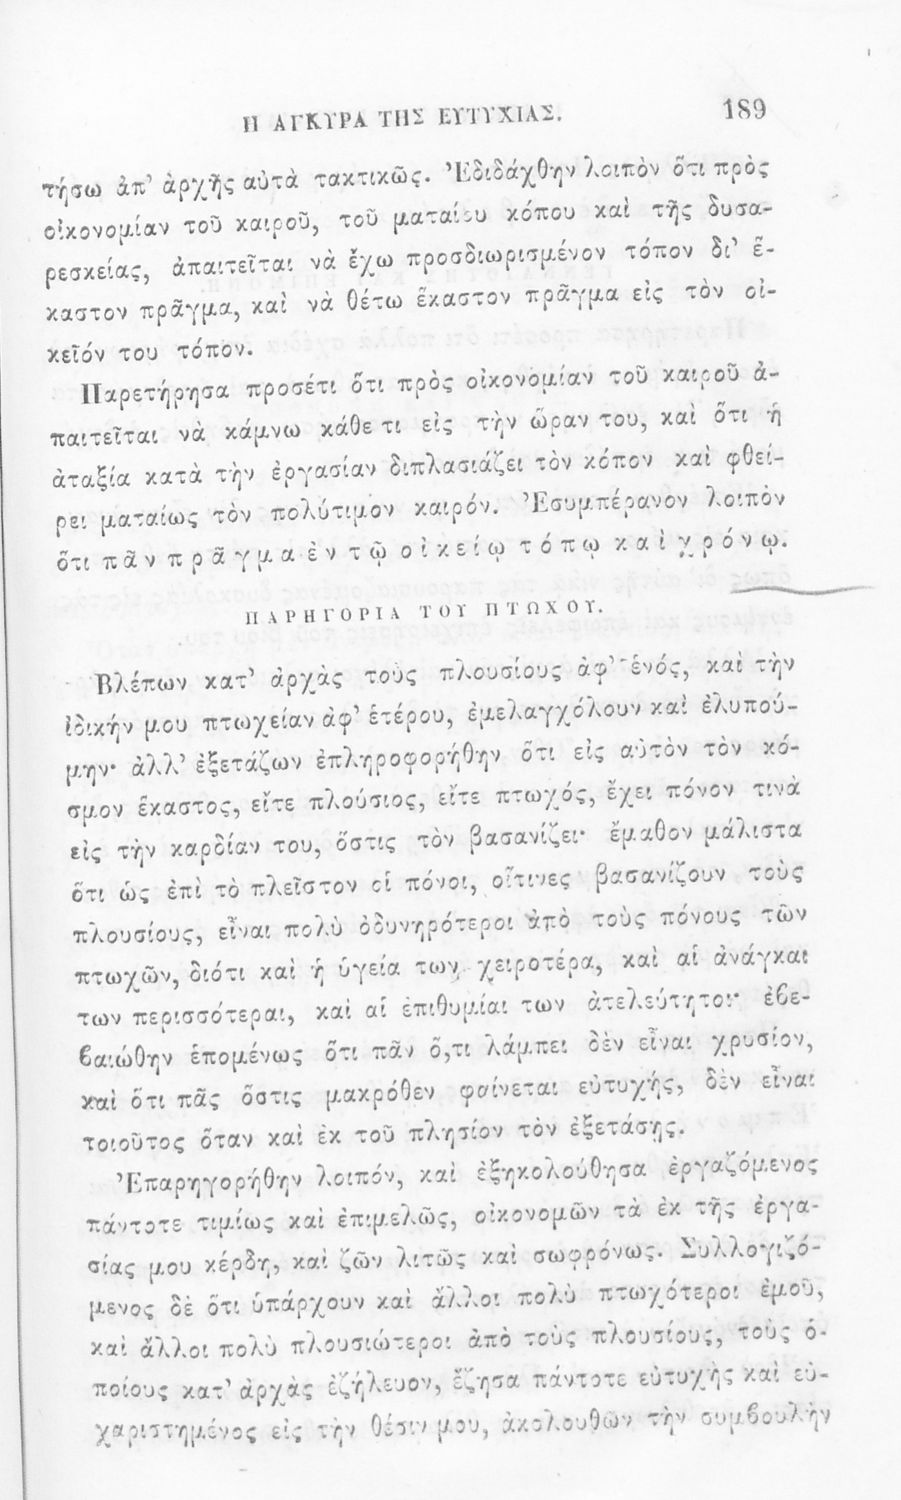 Η ΑΓΚΥΡΑ ΤΗΣ ΕΥΤΥΧΙΑΣ. 189
τήσω ἀπ' ἀρχῆς αὐτὰ τακτικῶς. Ἐδιδάχθην λοιπὸν ὅτι πρὸς
οἰκονομίαν τοῦ καιροῦ, τοῦ ματαίου κόπου καὶ τῆς δυσα-
ρεσκείας, ἀπαιτεῖται νὰ ἔχω προσδιωρισμένον τόπον δι' ἕ-
καστον πρᾶγμα, καὶ νὰ θέτω ἕκαστον πρᾶγμα εἰς τὸν οἰ-
κεῖόν του τόπον.
Παρετήρησα προσέτι ὅτι πρὸς οἰκονομίαν τοῦ καιροῦ ἀ-
παιτεῖται νὰ κάμνω κάθε τι εἰς τὴν ὥραν του, καὶ ὅτι ἡ
ἀταξία κατὰ τὴν ἐργασίαν διπλασιάζει τὸν κόπον καὶ φθεί-
ρει ματαίως τὸν πολύτιμον καιρόν. Ἐσυμπέρανον λοιπὸν
ὅτι πᾶν πρᾶγμα ἐν τῷ οἰκείῳ τόπῳ καὶ χρόνῳ.
ΠΑΡΗΓΟΡΙΑ ΤΟΥ ΠΤΩΧΟΥ.
Βλέπων κατ' ἀρχὰς τοὺς πλουσίους ἀφ' ἑνός, καὶ τὴν
ἰδικήν μου πτωχείαν ἀφ' ἑτέρου, ἐμελαγχόλουν καὶ ἐλυπού-
μην· ἀλλ' ἐξετάζων ἐπληροφορήθην ὅτι εἰς αὐτὸν τὸν κό-
σμον ἕκαστος, εἴτε πλούσιος, εἴτε πτωχός, ἔχει πόνον τινὰ
εἰς τὴν καρδίαν του, ὅστις τὸν βασανίζει· ἔμαθον μάλιστα
ὅτι ὡς ἐπὶ τὸ πλεῖστον οἱ πόνοι, οἵτινες βασανίζουν τοὺς
πλουσίους, εἶναι πολὺ ὀδυνηρότεροι ἀπὸ τοὺς πόνους τῶν
πτωχῶν, διότι καὶ ἡ ὑγεία των χειροτέρα, καὶ αἱ ἀνάγκαι
των περισσότεραι, καὶ αἱ ἐπιθυμίαι των ἀτελεύτητοι· ἐβε-
βαιώθην ἑπομένως ὅτι πᾶν ὅ,τι λάμπει δὲν εἶναι χρυσίον,
καὶ ὅτι πᾶς ὅστις μακρόθεν φαίνεται εὐτυχής, δὲν εἶναι
τοιοῦτος ὅταν καὶ ἐκ τοῦ πλησίον τὸν ἐξετάσῃς.
Ἐπαρηγορήθην λοιπόν, καὶ ἐξηκολούθησα ἐργαζόμενος
πάντοτε τιμίως καὶ ἐπιμελῶς, οἰκονομῶν τὰ ἐκ τῆς ἐργα-
σίας μου κέρδη, καὶ ζῶν λιτῶς καὶ σωφρόνως. Συλλογιζό-
μενος δὲ ὅτι ὑπάρχουν καὶ ἄλλοι πολὺ πτωχότεροι ἐμοῦ,
καὶ ἄλλοι πολὺ πλουσιώτεροι ἀπὸ τοὺς πλουσίους, τοὺς ὁ-
ποίους κατ' ἀρχὰς ἐζήλευον, ἔζησα πάντοτε εὐτυχὴς καὶ εὐ-
χαριστημένος εἰς τὴν θέσιν μου, ἀκολουθῶν τὴν συμβουλὴν